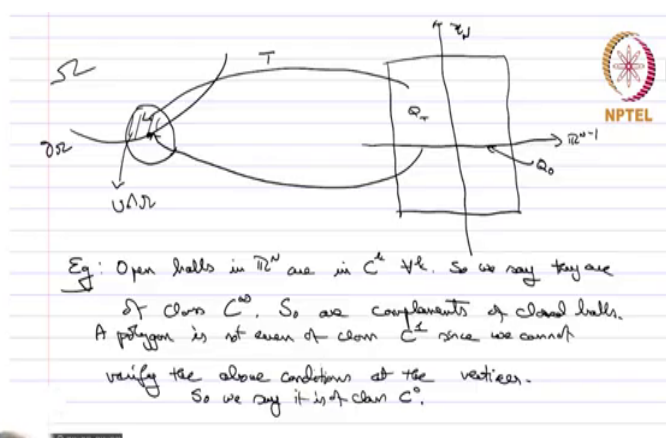 Ω
T
x_N
NPTEL
Q_+
ℝ^{N-1}
∂Ω
Q_0
U∩Ω
Eg: Open balls in ℝ^N are in C^k ∀k. So we say they are
of class C^∞. So are complements of closed balls.
A polygon is not even of class C^1 since we cannot
verify the above conditions at the vertices.
So we say it is of class C^0.